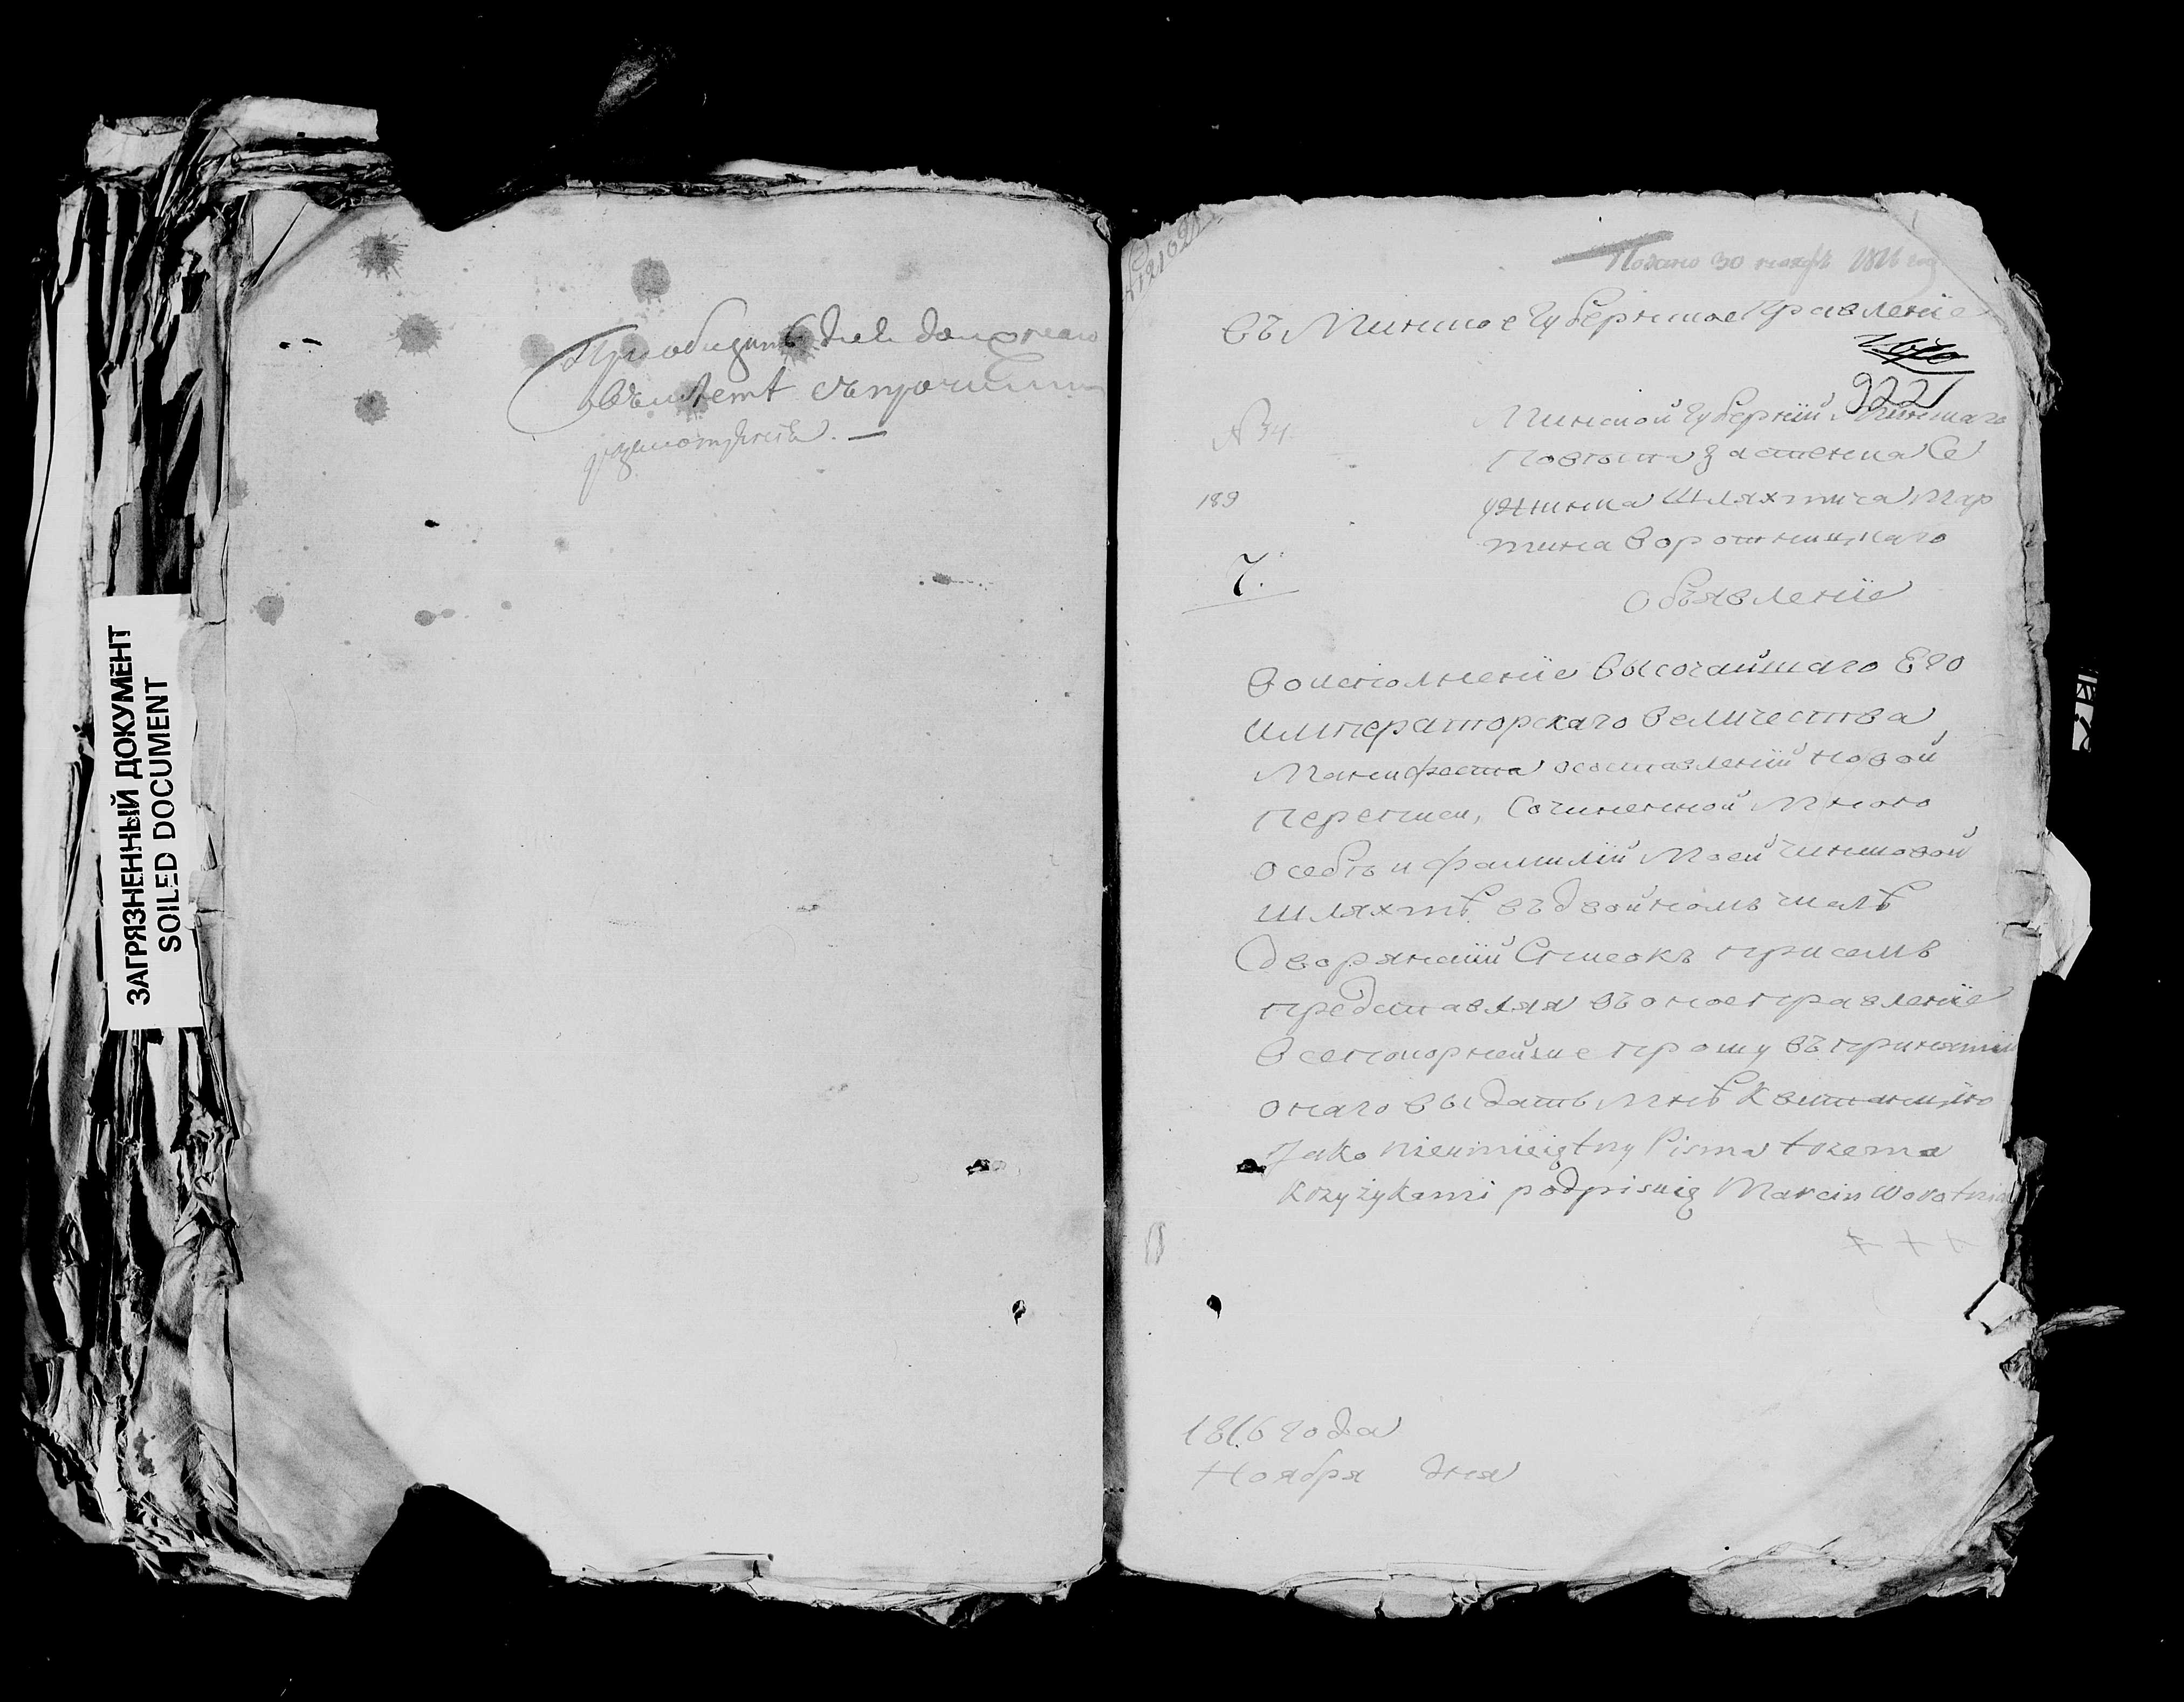 ЗАГРЯЗНЕННЫЙ ДОКУМЕНТ
SOILED DOCUMENT
съ прочими
30 ноября 1816 год
въ Минское Губернское Правленіе
9221
Минской Губерніи Минскаго
N 34
Повѣта Застенка Се
189
Шляхтича Мар
тина Воротницкаго
7.
Объявленіе
Во исполненіе Высочайшаго Его
Императорскаго Величества
Манифеста о составленіи новой
переписи, Сочиненной Мною
о себѣ и фамиліи Моей Чиншовой
шляхтѣ въ двойномъ числѣ
Дворянскій Списокъ при семъ
представляя въ оное правленіе
Всепокорнейше прошу въ принятіи
онаго выдать мнѣ Квитанцію
Jako nieumieiętny Pisma trzema
krzyżykami podpisuię Marcin Worotnic
+ + +
1816 года
Ноября дня